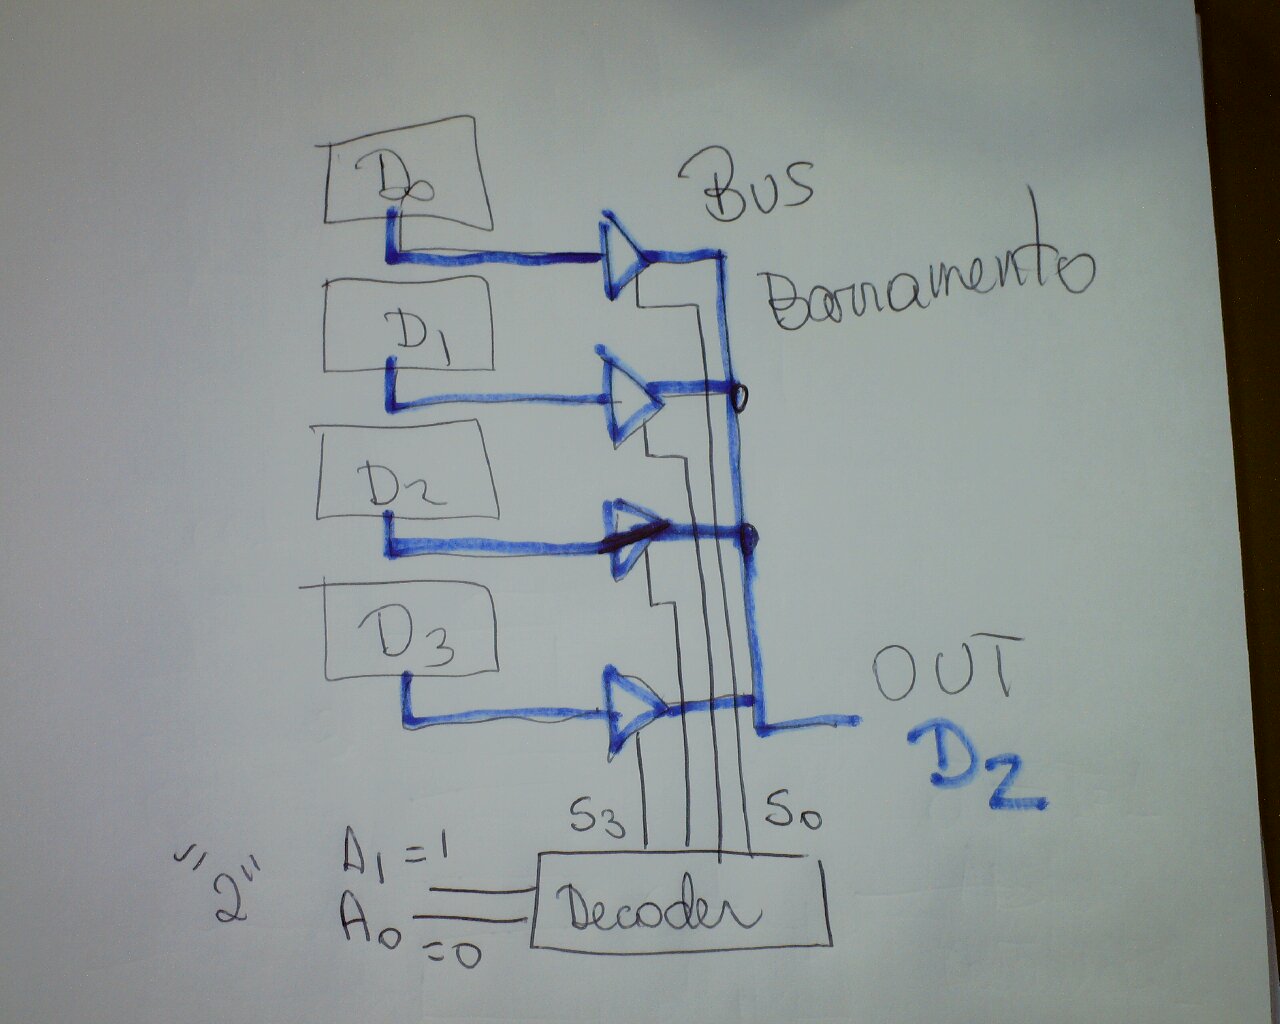 D0
BUS
Barramento
D1
D2
D3
OUT
D2
S3
S0
A1 = 1
"2"
A0 = 0
Decoder